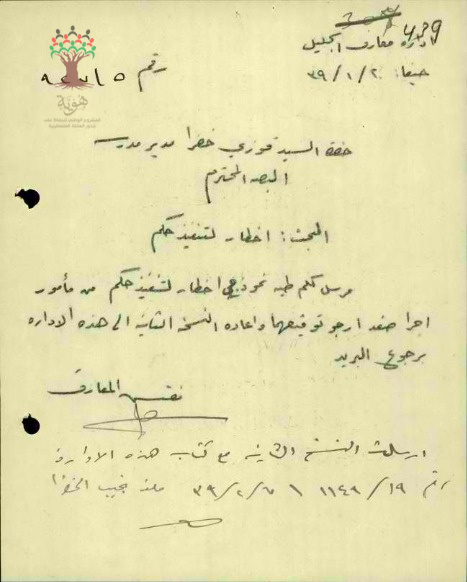 ادارة معارف الجليل
حيفا: ٣٩/١/٢٠
رقم
هوية
حضرة السيد فوزي خضرا مدير مدرسة
البصه المحترم
المبحث: اخطار لتنفيذ حكم
مرسل لكم طيه نموذجي اخطار لتنفيذ حكم من مأمور
اجرا صفد ارجو توقيعهما واعاده النسخة الثانيه الى هذه الاداره
برجوع البريد
مفتش المعارف
ارسلت النسخ الثانيه مع كتاب هذه الادارة
رقم ١١٤٩/١٩